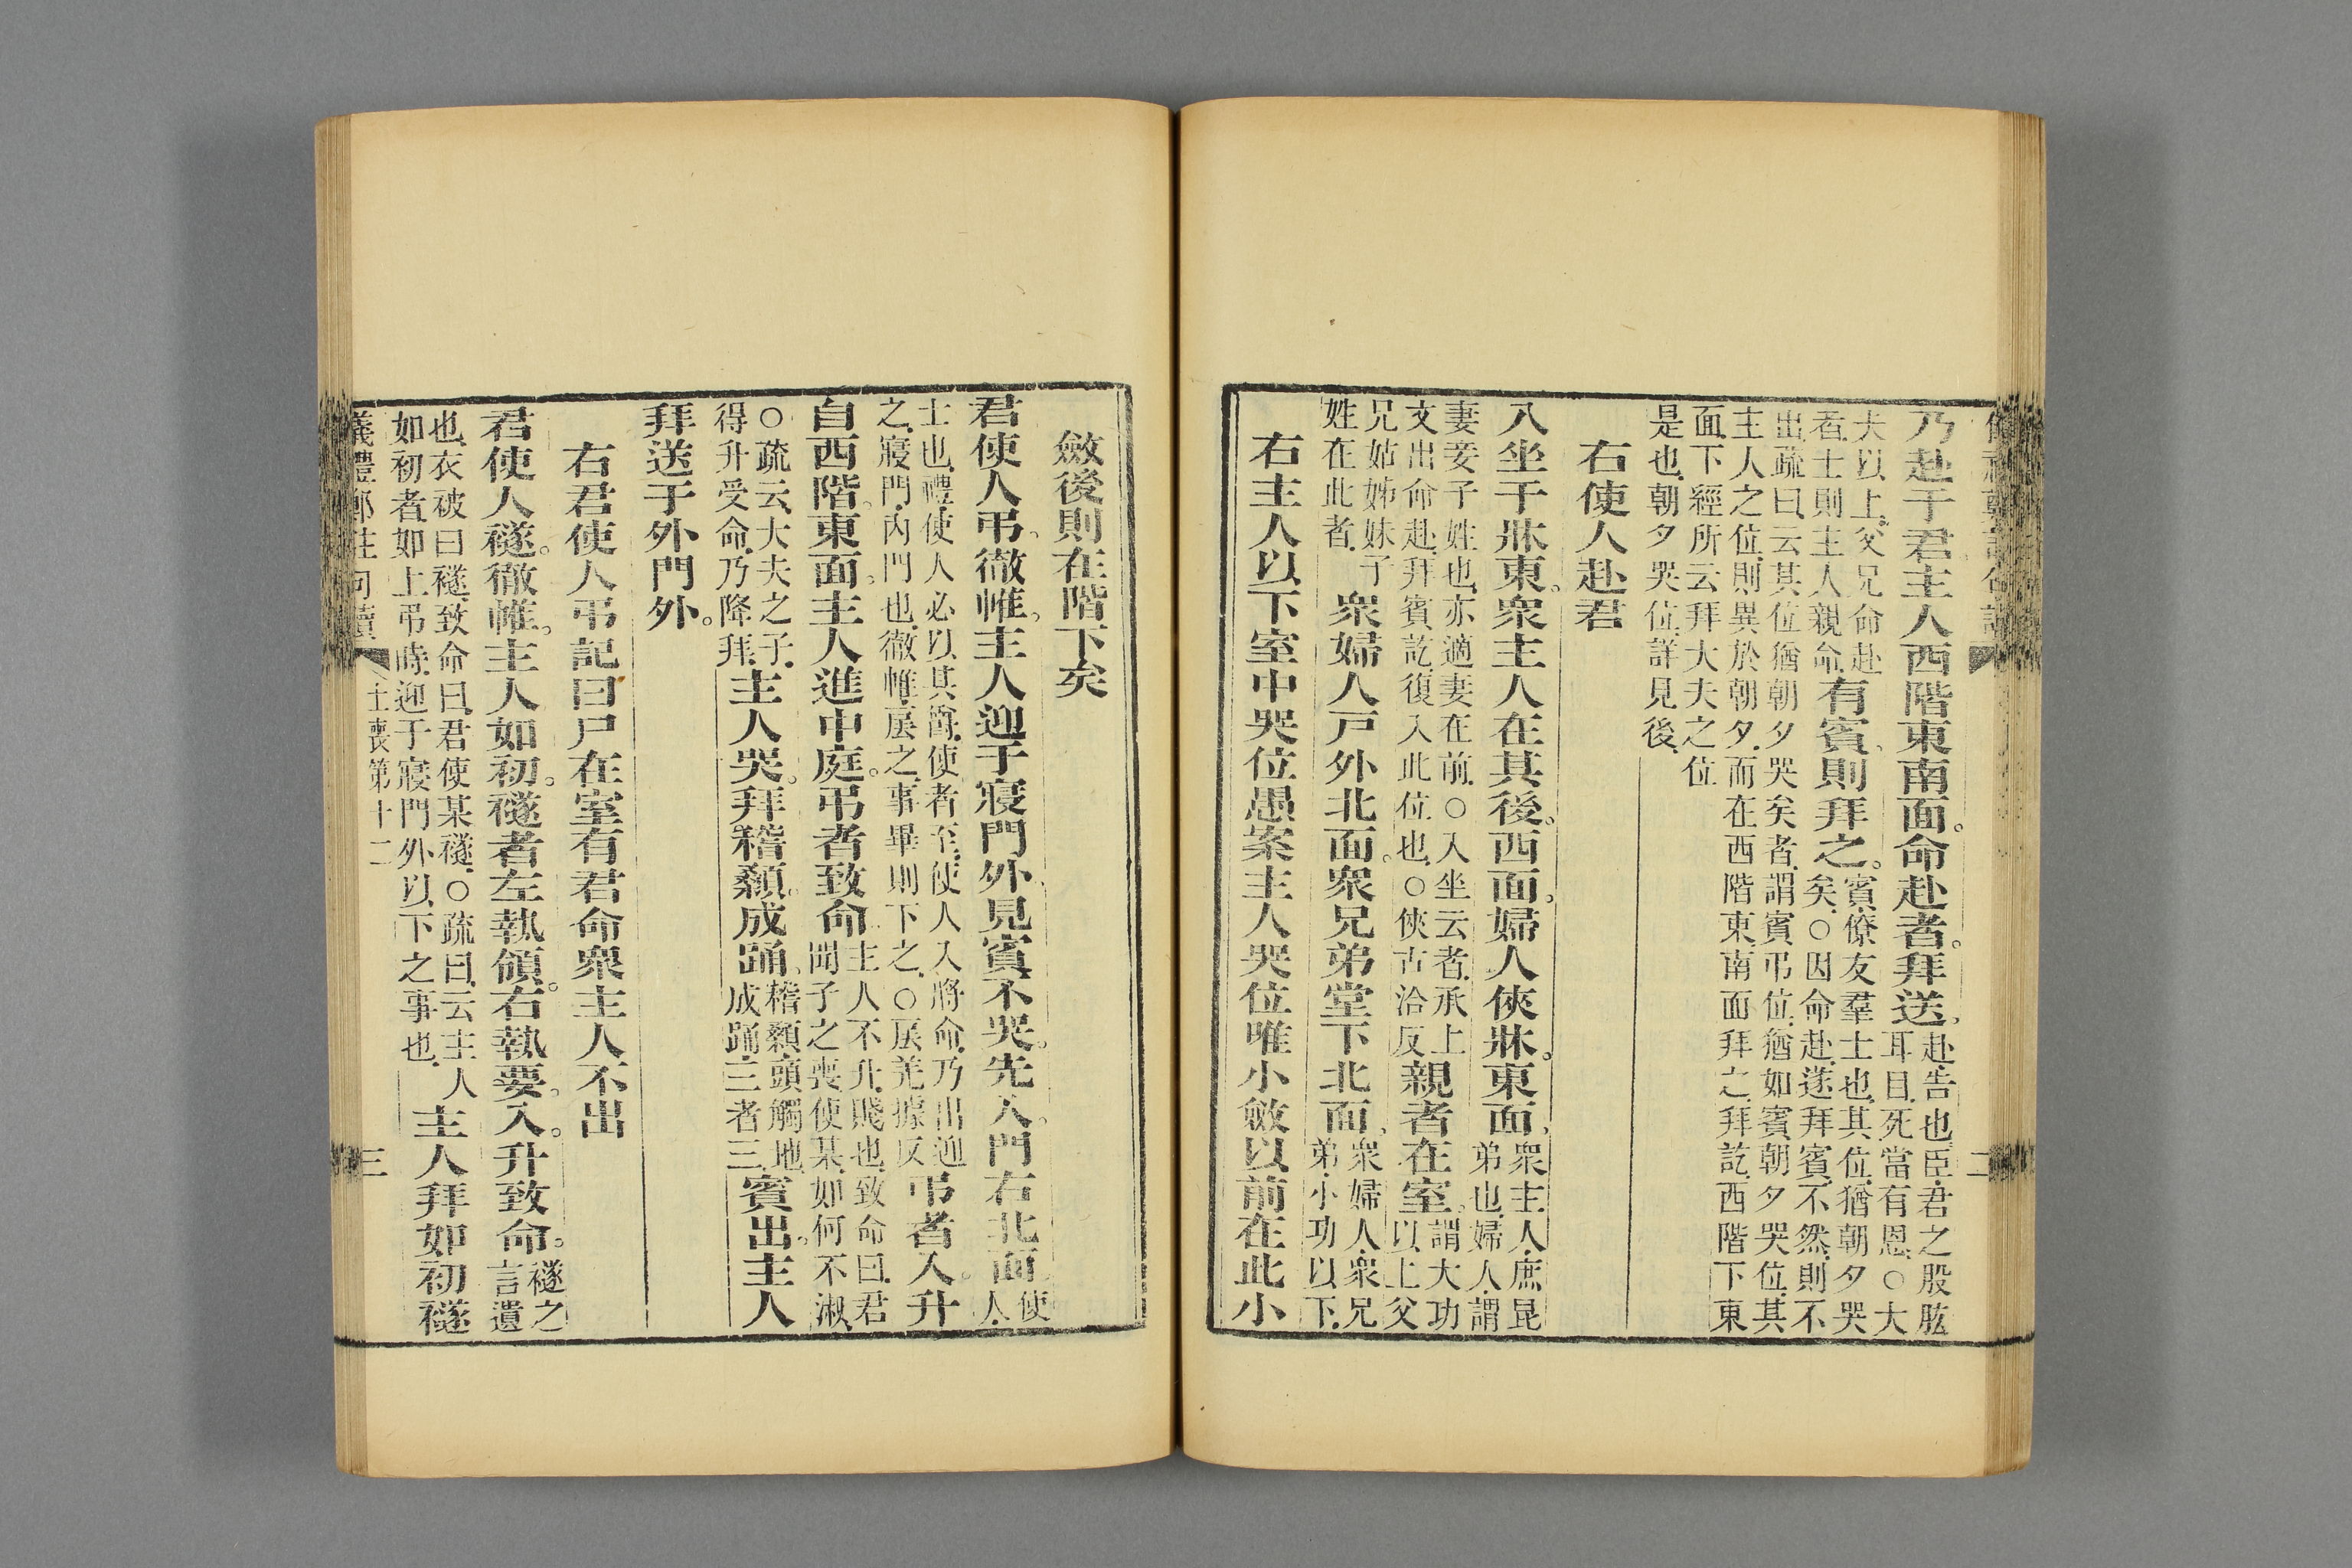 乃赴于君主人西階東南面。命赴者。拜送。赴告也臣君之股肱
耳目死當有恩○大
夫以上父兄命赴
者士則主人親命有賓則拜之。賓僚友羣士也其位猶朝夕哭
矣○因命赴遂拜賓不然則不
出疏曰云其位猶朝夕哭矣者謂賓弔位猶如賓朝夕哭位其
主人之位則異於朝夕而在西階東南面拜之拜訖西階下東
面下經所云拜大夫之位
是也朝夕哭位詳見後
右使人赴君
入坐于牀東。衆主人在其後。西面。婦人俠牀。東面。衆主人庶昆
弟也婦人謂
妻妾子姓也亦適妻在前○入坐云者承上
文出命赴拜賓訖復入此位也○俠古洽反親者在室。謂大功
以上父
兄姑姊妹子
姓在此者衆婦人戶外北面。衆兄弟堂下北面。衆婦人衆兄
弟小功以下
右主人以下室中哭位愚案主人哭位唯小斂以前在此小
二
斂後則在階下矣
君使人弔。徹帷。主人迎于寢門外見賓不哭。先入。門右北面。使
人
士也禮使人必以其爵使者至使人入將命乃出迎
之寢門內門也徹帷㞐之事畢則下之○㞐羌據反弔者入。升
自西階。東面。主人進中庭。弔者致命主人不升賤也致命曰君
聞子之喪使某如何不淑
○疏云大夫之子
得升受命乃降拜主人哭。拜稽顙。成踊。稽顙頭觸地
成踊三者三賓出。主人
拜送于外門外。
右君使人弔記曰尸在室有君命衆主人不出
君使人襚。徹帷。主人如初。襚者左執領。右執要。入。升致命。襚之
言遺
也衣被曰襚致命曰君使某襚○疏曰云主人
如初者如上弔時迎于寢門外以下之事也主人拜如初襚
儀禮鄭註句讀 士喪第十二
三